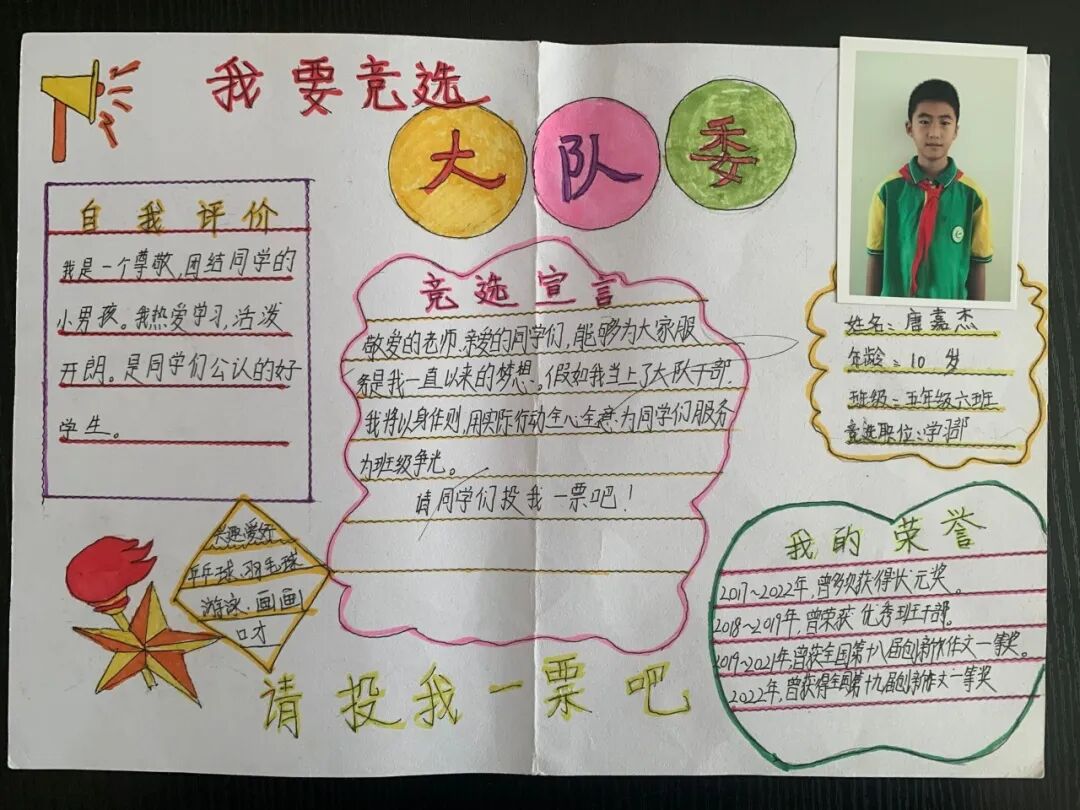 我要竞选
大队委
自我评价
我是一个尊敬,团结同学的
小男孩。我热爱学习,活泼
开朗。是同学们公认的好
学生。
竞选宣言
敬爱的老师、亲爱的同学们,能够为大家服
务是我一直以来的梦想。假如我当上了大队干部.
我将以身作则,用实际行动全心全意为同学们服务
为班级争光。
请同学们投我一票吧!
姓名:唐嘉杰
年龄:10岁
班级:五年级六班
竞选职位:学习部
兴趣爱好
乒乓球、羽毛球
游泳、画画
口才
我的荣誉
2017~2022年,曾多次获得状元奖。
2018~2019年,曾荣获优秀班干部。
2019~2021年,曾获全国第十八届创新作文一等奖。
2022年,曾获得全国第十九届创新作文一等奖
请投我一票吧